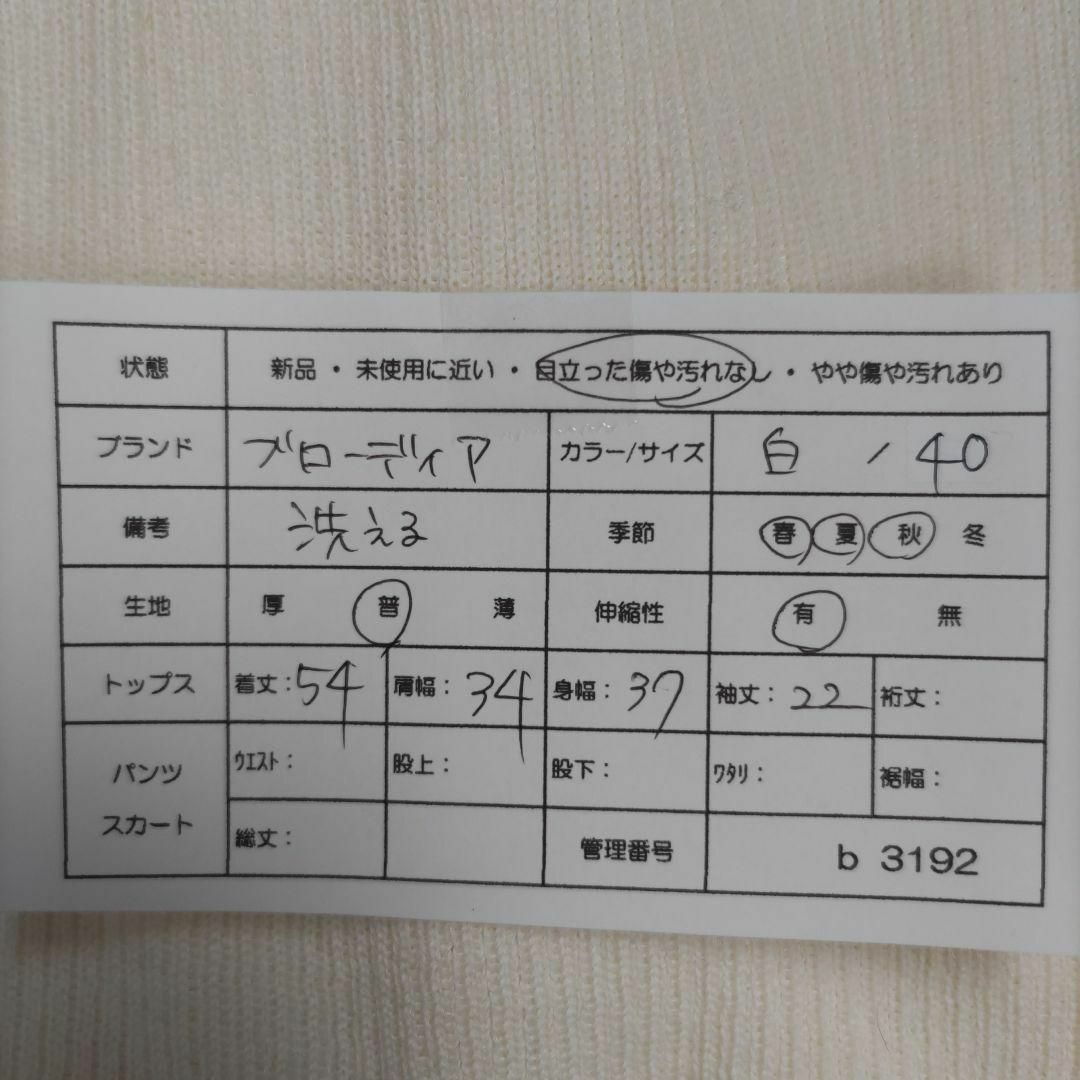 状態 新品・未使用に近い・目立った傷や汚れなし・やや傷や汚れあり
ブランド ブローディア カラー/サイズ 白 / 40
備考 洗える 季節 春 夏 秋 冬
生地 厚 普 薄 伸縮性 有 無
トップス 着丈:54 肩幅:34 身幅:37 袖丈:22 裄丈:
パンツ スカート ウエスト: 股上: 股下: ワタリ: 裾幅:
総丈: 管理番号 b 3192